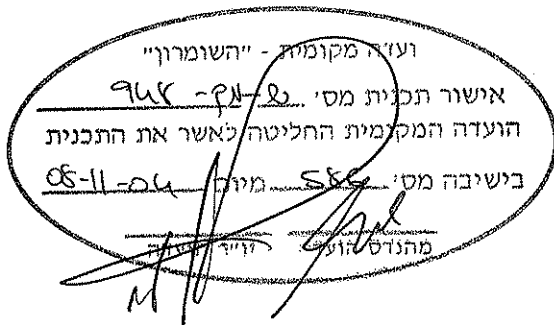 ועדה מקומית - "השומרון"
אישור תכנית מס' ש-מק-
הועדה המקומית החליטה לאשר את התכנית
בישיבה מס' מיום 08-11-04
מהנדס הועדה יו"ר הועדה